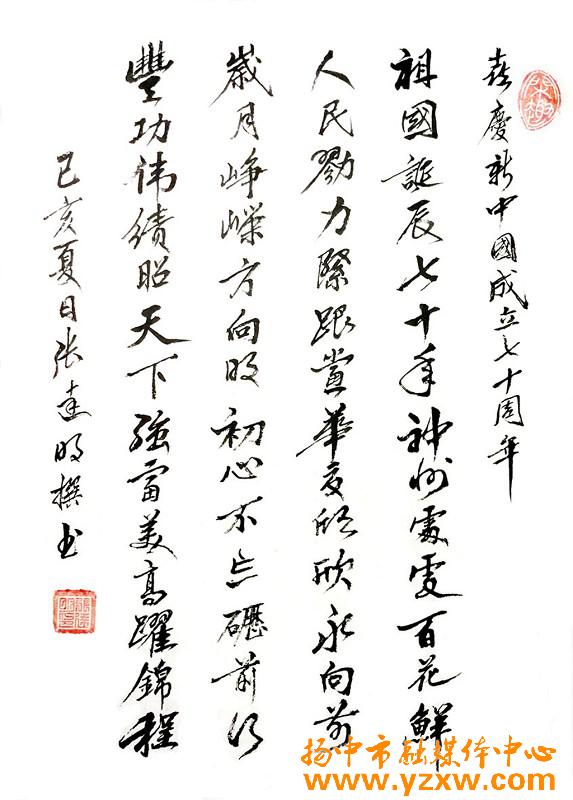 喜慶新中國成立七十周年
祖國誕辰七十年神州處處百花鮮
人民勠力緊跟黨華夏欣欣永向前
歲月崢嶸方向明初心不忘礪前行
豐功偉績昭天下強富美高躍錦程
己亥夏日張達明撰书
扬中市融媒体中心
www.yzxw.com